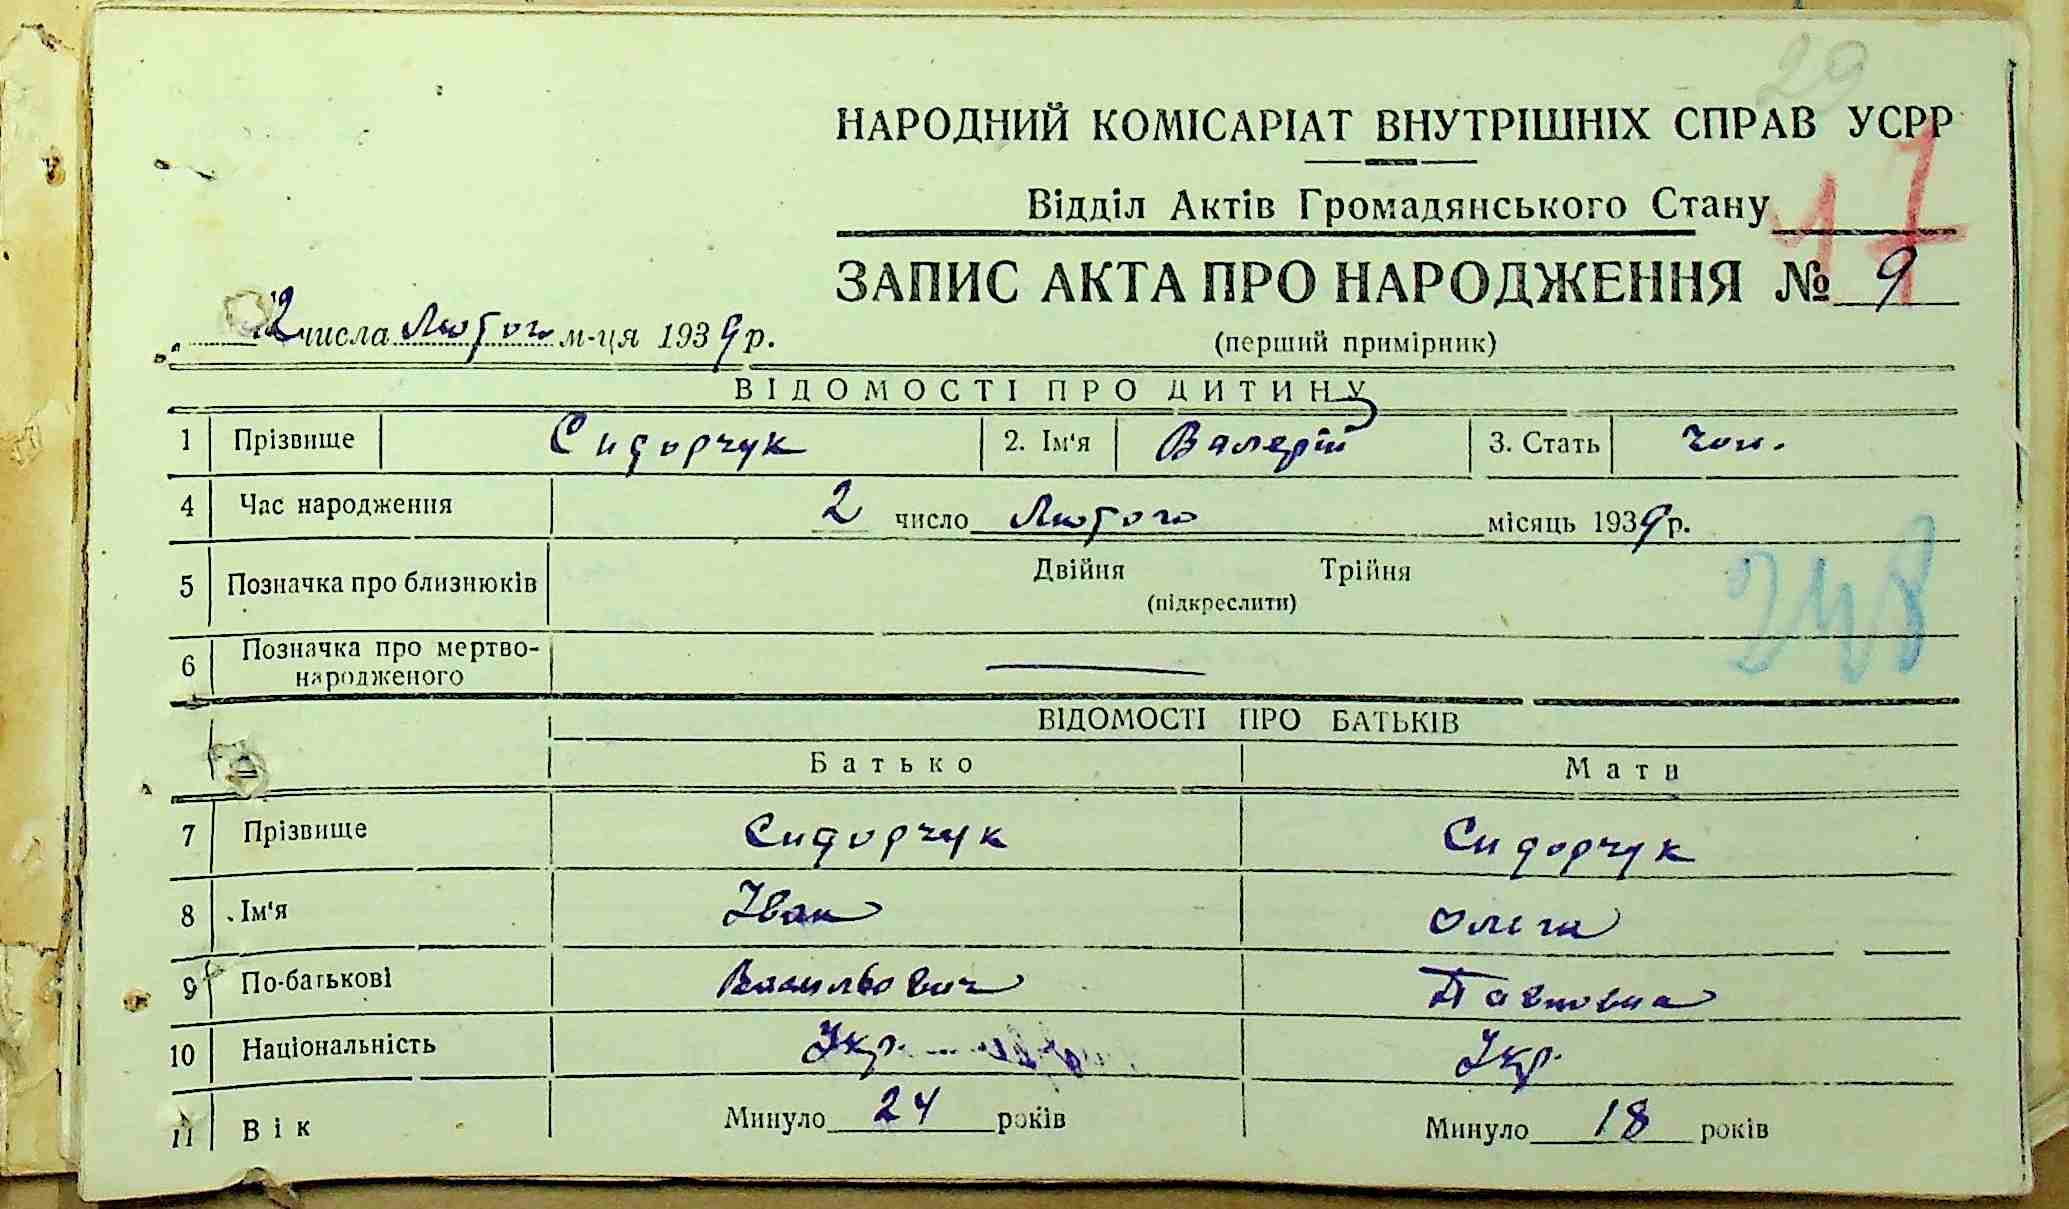 29
НАРОДНИЙ КОМІСАРІАТ ВНУТРІШНІХ СПРАВ УСРР
Відділ Актів Громадянського Стану
17
ЗАПИС АКТА ПРО НАРОДЖЕННЯ № 9
(перший примірник)
числа Лютого м-ця 1939 р.
ВІДОМОСТІ ПРО ДИТИНУ
1 Прізвище Сидорчук 2. Ім'я Валерій 3. Стать чол.
4 Час народження 2 число Лютого місяць 1939 р.
5 Позначка про близнюків Двійня Трійня
(підкреслити)
248
6 Позначка про мертво-
народженого
ВІДОМОСТІ ПРО БАТЬКІВ
Батько Мати
7 Прізвище Сидорчук Сидорчук
8 Ім'я Іван Ольга
9 По-батькові Васильович Павловна
10 Національність Укр. Укр.
11 Вік Минуло 24 років Минуло 18 років